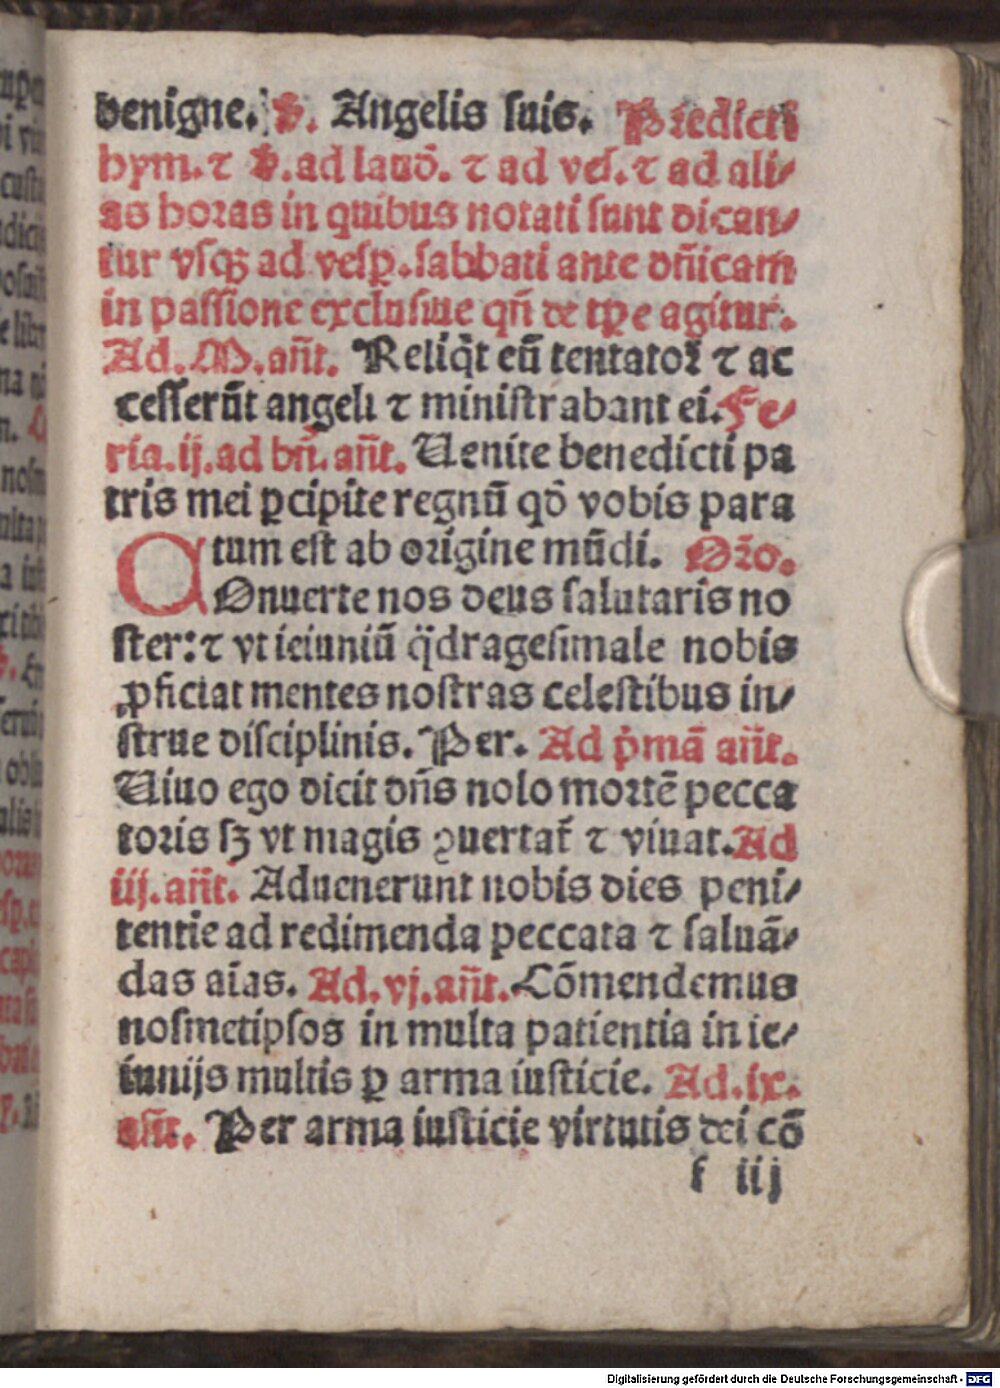 benigne. ℣. Angelis suis. Predicti
hym. ⁊ ℣. ad laud̄. ⁊ ad ves. ⁊ ad ali⸗
as horas in quibus notati sunt dican⸗
tur vsqꝫ ad vesꝑ. sabbati ante dn̄icam
in passione exclusiue qn̄ de tꝑe agitur.
Ad. M. an̄t. Reliq̇t eū tentator ⁊ ac
cesserūt angeli ⁊ ministrabant ei. Fe⸗
ria. ij. ad bn̄. an̄t. Uenite benedicti pa
tris mei ꝑcipite regnū qd̄ vobis para
tum est ab origine mūdi. Or̄o.
COnuerte nos deus salutaris no
ster: ⁊ vt ieiuniū q̈dragesimale nobis
ꝓficiat mentes nostras celestibus in⸗
strue disciplinis. Per. Ad p̓mā an̄t.
Uiuo ego dicit dn̄s nolo mortē pecca
toris sꝫ vt magis ꝯuertat᷑ ⁊ viuat. Ad
iij. an̄t. Aduenerunt nobis dies peni⸗
tentie ad redimenda peccata ⁊ saluā⸗
das aīas. Ad. vj. an̄t. Cōmendemus
nosmetipsos in multa patientia in ie⸗
iunijs multis ꝑ arma iusticie. Ad. ix.
an̄t. Per arma iusticie virtutis dei cō
f iij
Digitalisierung gefördert durch die Deutsche Forschungsgemeinschaft - DFG